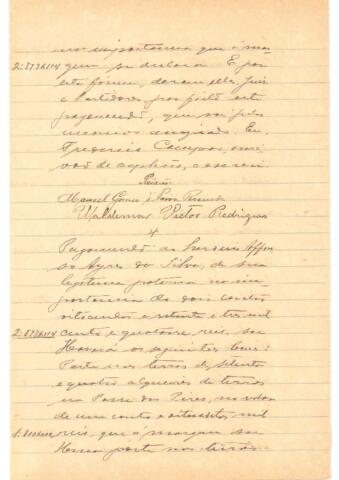 na importancia que á mar
2:873$114 gem se declara. E por
esta fórma, deram elles Juiz
e Partidores por feito este
pagamento, que vae pelos
mesmos assignado. Eu,
Frederico Campos, escri
vão de orphãos, o escrevi.
Manoel Gomes
Waldemar Victor Rodrigues
Pagamento ao herdeiro Affon
so Ayres da Silva, de sua
legitima paterna na im
portancia de dois contos
oitocentos e setenta e tres mil
2:873$114 cento e quatorze reis, sae
Haverá os seguintes bens:
Parte nas terras de setenta
e quatro alqueires de terras
na dos Pires, no valor
de um conto e oitocentos mil
reis, que á margem sae
Haverá parte nas terras